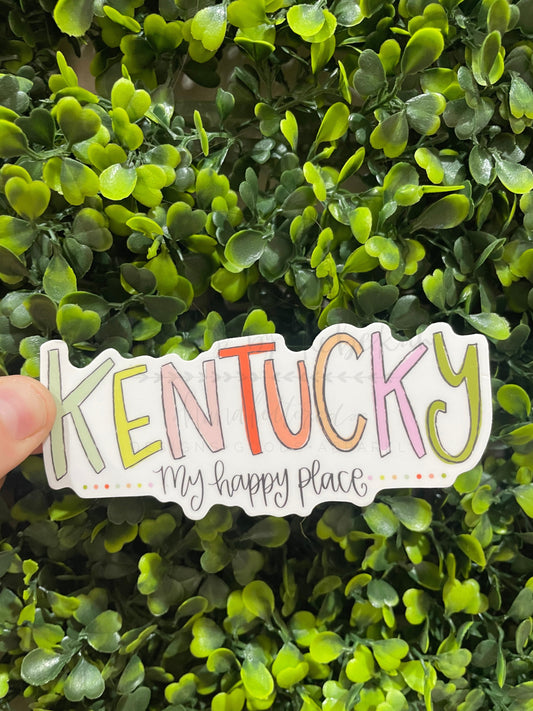 KENTUCKY
My happy place